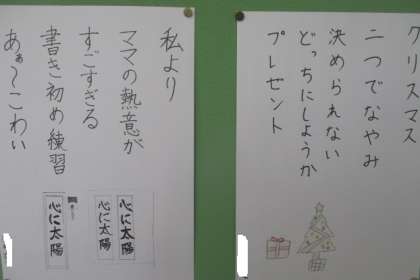 クリスマス
二つでなやみ
決められない
どっちにしようか
プレゼント
私より
ママの熱意が
すごすぎる
書き初め練習
あぁ〜こわい
心に太陽
心に太陽
心に太陽